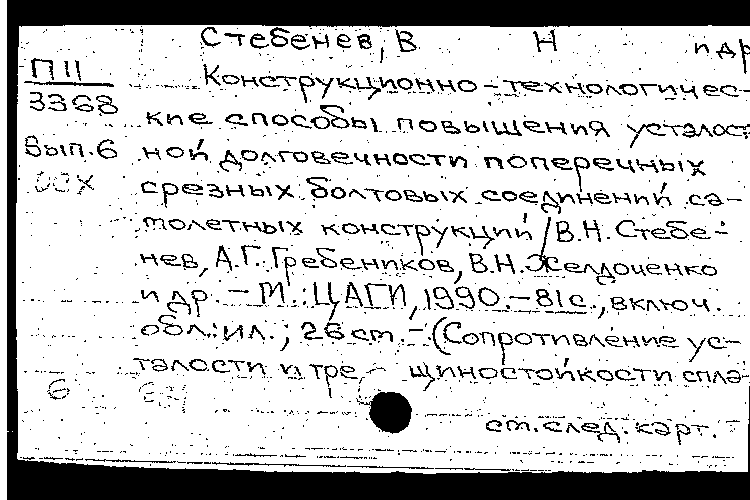 Стебенев, В Н и др
П II Конструкционно-технологичес-
3368 кие способы повышения усталост
Вып.6 ной долговечности поперечных
срезных болтовых соединений са-
молетных конструкций / В.Н. Стебе-
нев, А.Г. Гребеников, В.Н. Желдоченко
и др. - М.: ЦАГИ, 1990. - 81 с., включ.
обл.: ил.; 26 см. - (Сопротивление ус-
талости и тре - щиностойкости спла-
6
ст. след. карт.